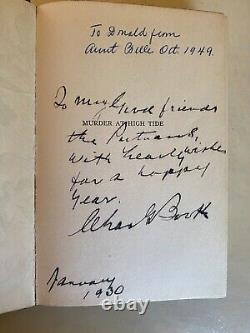 To Donald from
Aunt Belle Oct 1949.
To my good friends
MURDER AT HIGH TIDE
the Putnams
with hearty wishes
for a happy
year.
Chas G Booth
January
1930